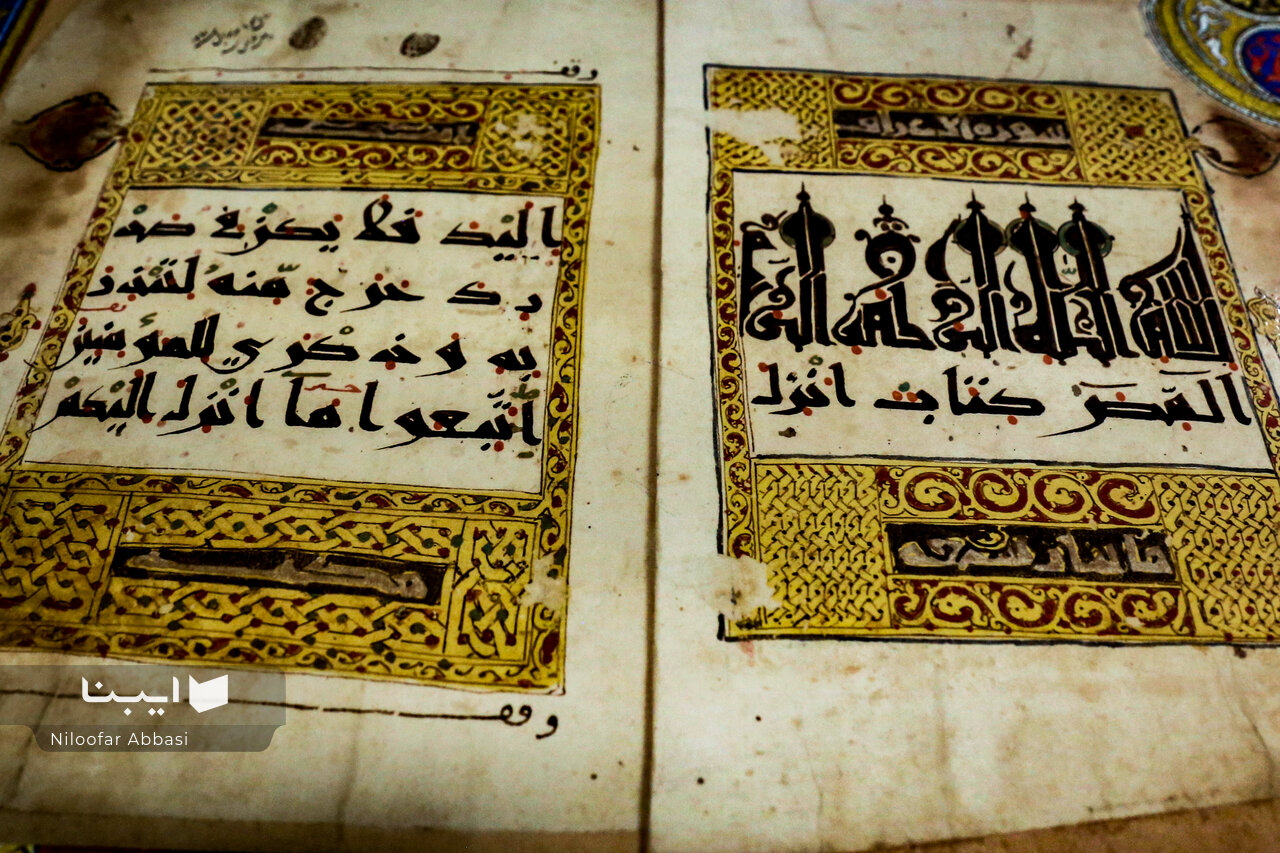 سورة الاعراف
بسم الله الرحمن الرحيم
المص كتاب انزل
وقف
اليك فلا يكن في صد
رك حرج منه لتنذر
به وذكرى للمؤمنين
اتبعوا ما انزل اليكم
وقف
ایبنا
Niloofar Abbasi